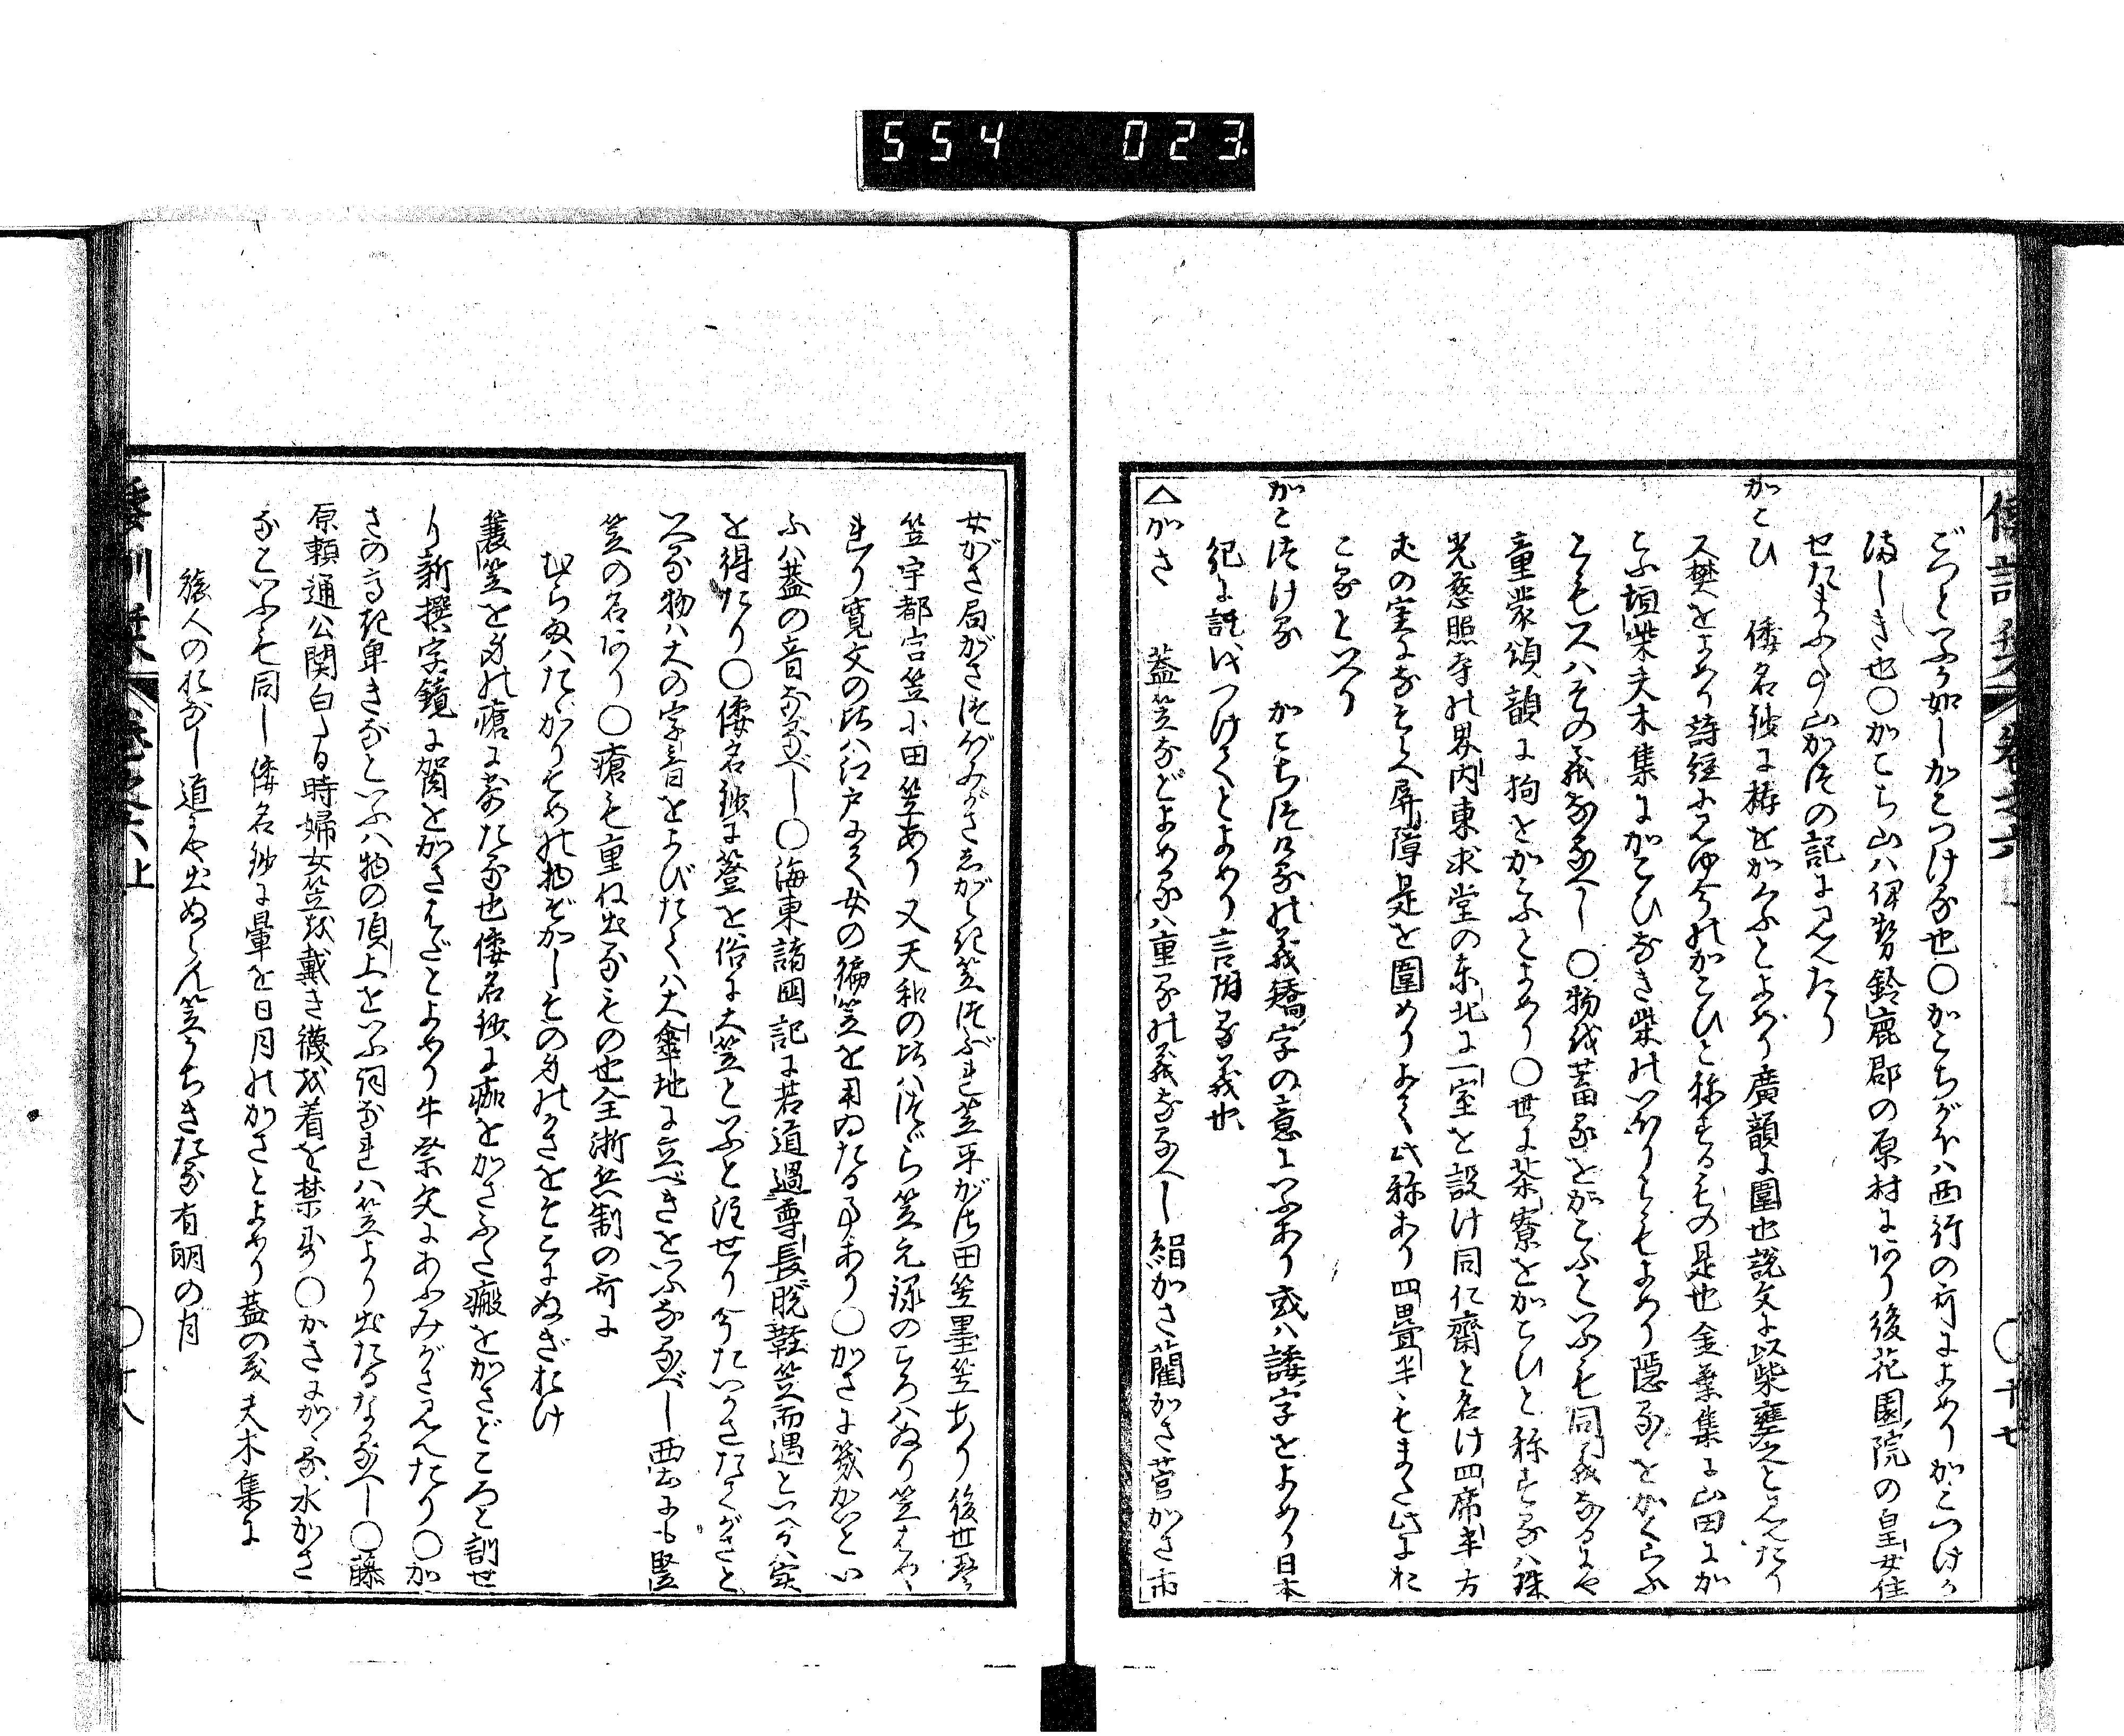 554 023
ごつといふか如しかこつける也〇かこちがほハ西行の哥によめりかこつけか
ましき也〇かこち山ハ伊勢鈴鹿郡の原村にあり後花園院の皇女住
せたまふ事山かつの記に見えたり
かこひ 倭名鈔に栫をかくふとよめり廣韻に圍也説文に以柴壅之と見えたり
又樊をよめり詩経に見ゆ今のかこひと称するもの是也金葉集に山田にか
こふ垣柴夫木集にかこひなき柴のいほりともよめり隠るゝをかくらふ
ともいへハその義なるへし〇物を蓄るをかこふといふも同義なるにや
童蒙頌韻に拘をかこふとよめり〇世に茶寮をかこひと称するハ珠
光慈照寺の界内東求堂の東北に一室を設け同仁齋と名け四席半方
丈の室になそらへ屏障是を圍めりよて此称あり四畳半もまた此にお
こるといへり
かこつける かこちつくるの義矯字の意にいふあり或ハ諉字をよめり日本
紀に託此つけてとよめり言附る義也
△かさ 蓋笠などよめるハ重るの義なるへし絹かさ藺かさ菅かさ市
女がさ局がさつぼみがさ志がらき笠つぶれ笠平がた田笠墨笠あり後世琴
笠宇都宮笠小田笠あり又天和の比ハつゞら笠元禄のころハぬり笠はや
れり寛文の比ハ江戸にて女の編笠を用ゐたる事あり〇かさに幾かいとい
ふハ蓋の音なるべし〇海東諸国記に若道遇尊長脱鞋笠而過といへハ実
を得たり〇倭名鈔に簦を俗に大笠といふと注せり今たいかさたてがさと
いふ物ハ大の字音をよびたてハ大傘地に立べきをいふなるべし西土にも竪
笠の名あり〇瘡も重ね出るもの也全浙兵制の哥に
むら雨ハたゞかりそめの物ぞかしその身のかさをそこにぬぎおけ
蓑笠を身の瘡によせたる也倭名鈔に痂をかさふた瘢をかさどころと訓せ
り新撰字鏡に䯻をかさもだとよめり牛祭文にあふみがさ見えたり〇か
さの高き卑きなどいふハ物の頂上をいふ詞なれハ笠より出たるなるへし〇藤
原頼通公関白たる時婦女笠を戴き襪を着を禁す〇かさにかゝる水かさ
などいふも同し倭名鈔に暈を日月のかさとよめり蓋の義夫木集に
旅人のおなし道にや出ぬらん笠うちきたる有明の月
倭訓栞 卷之六上 〇十八